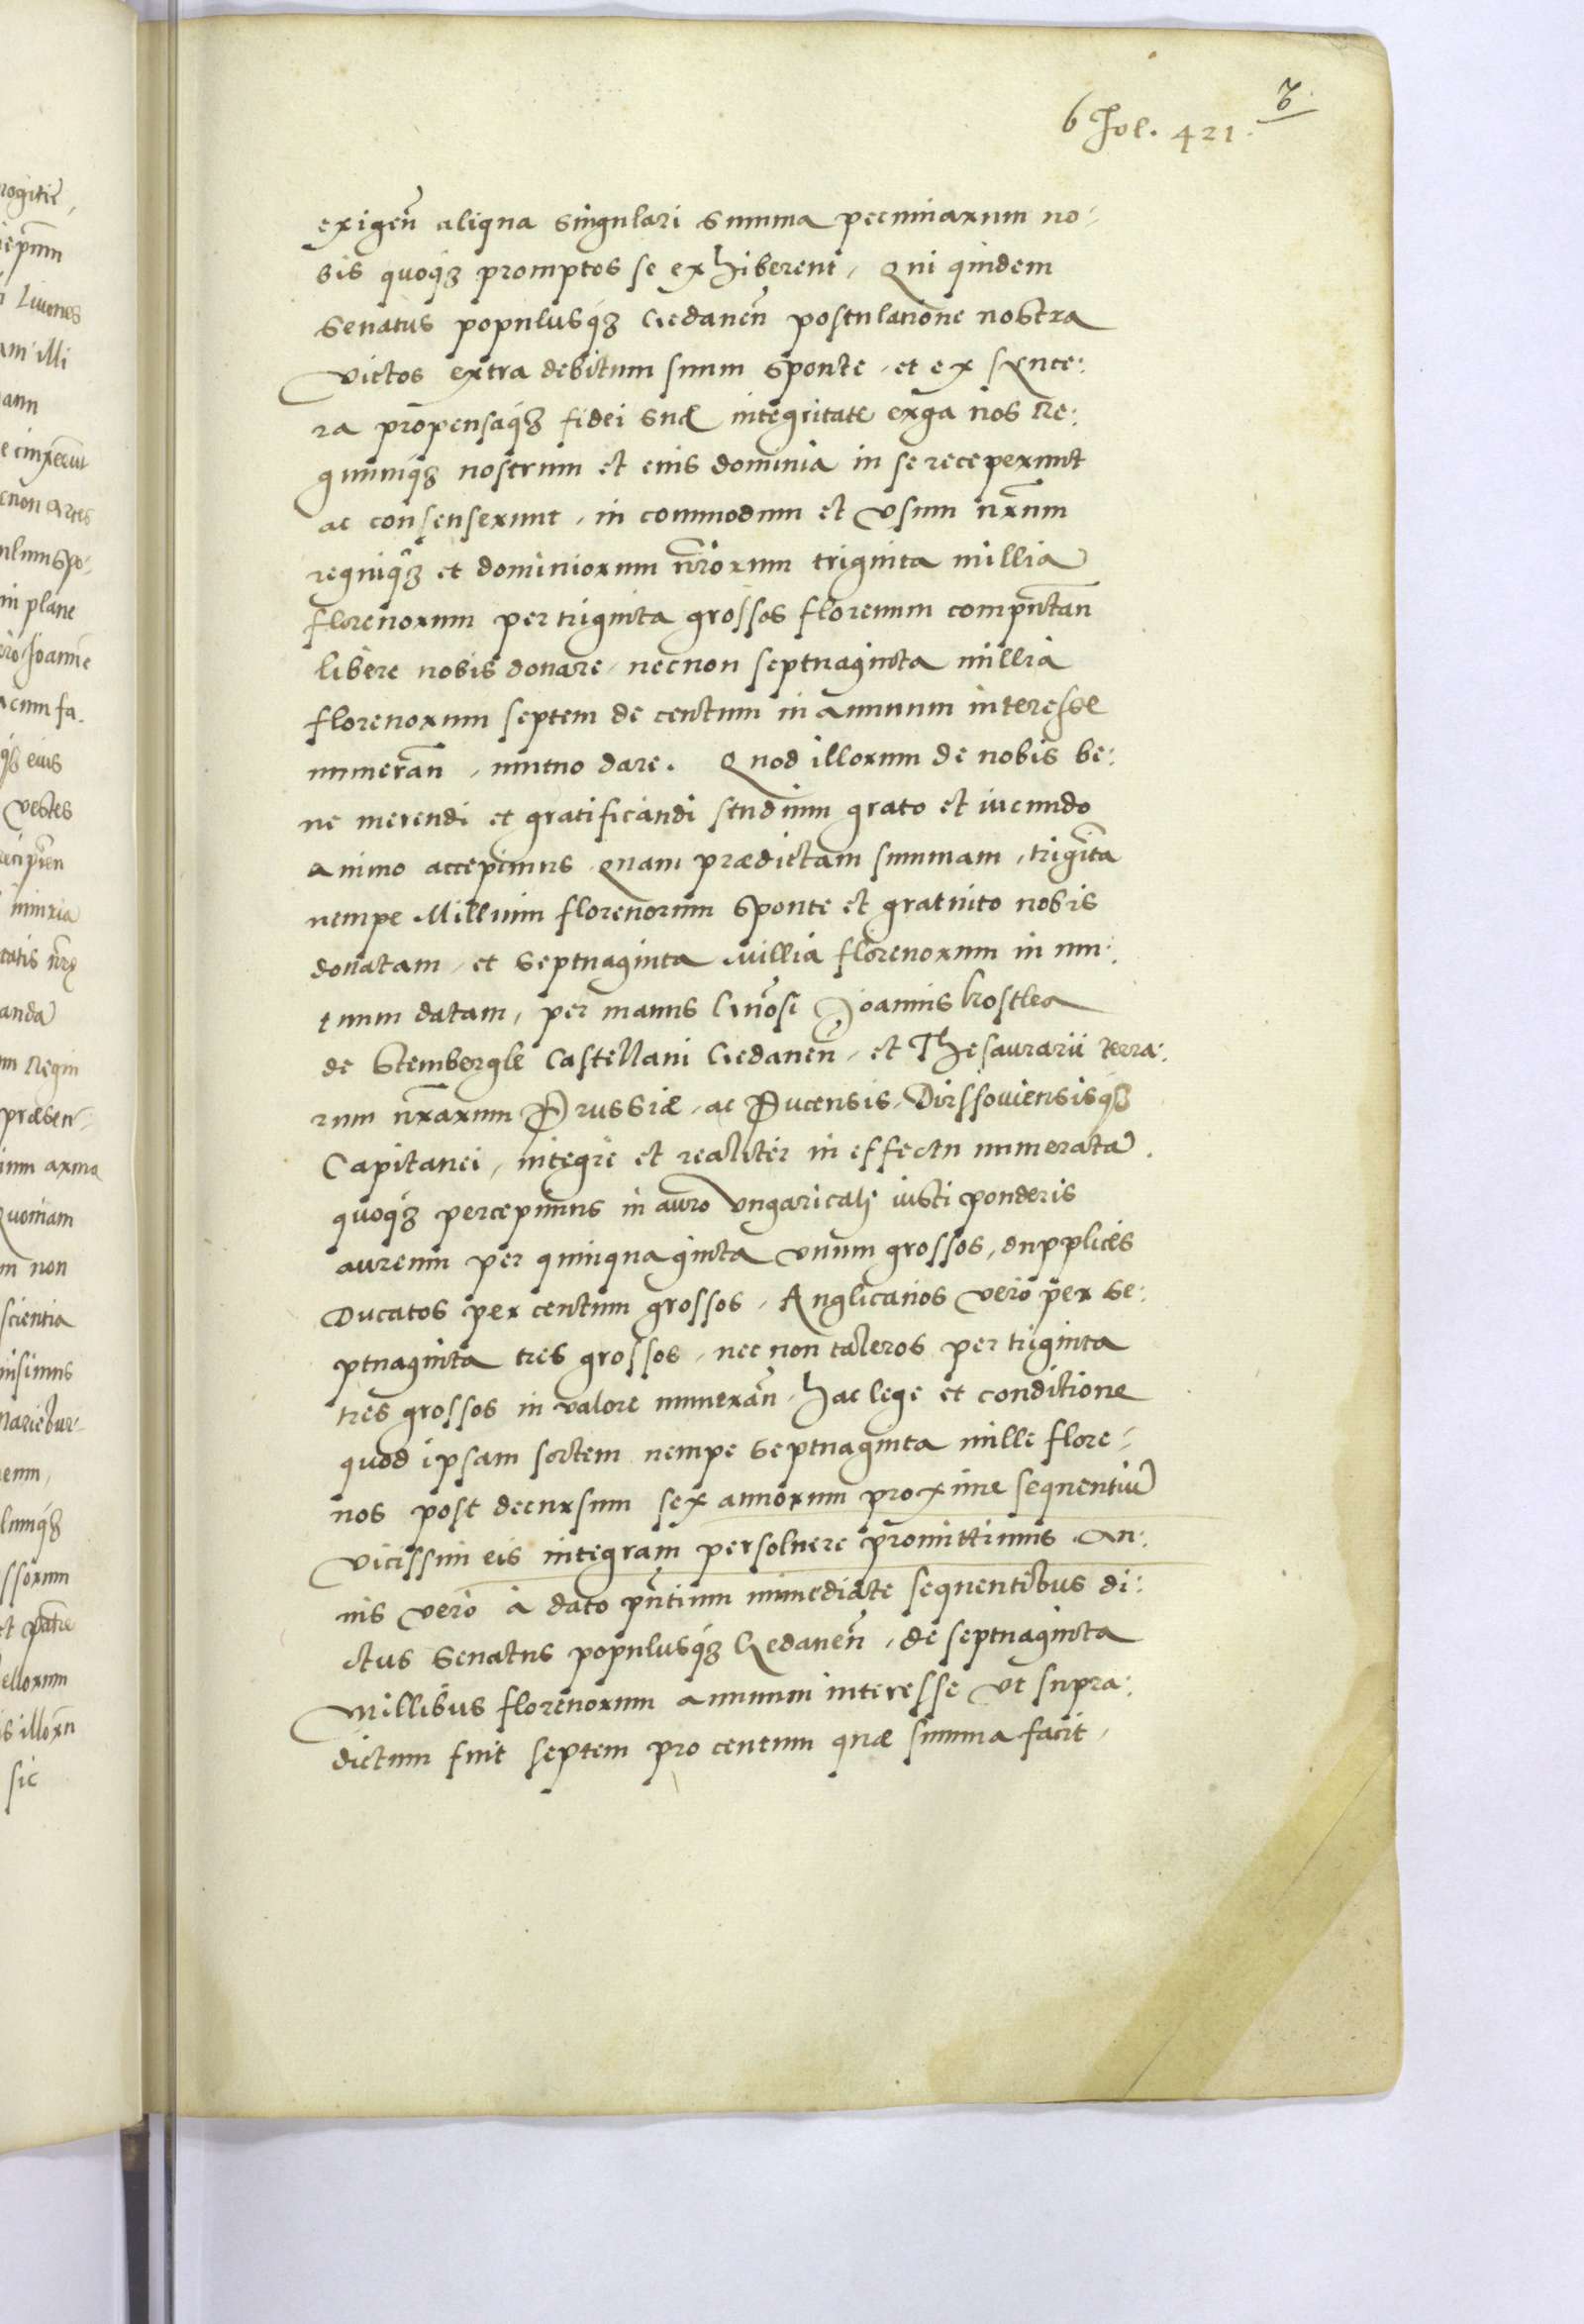 b Fol. 421.
exigen̄ aliqua singulari summa pecuniarum no-
bis quoqꝫ promptos se exhiberent, Qui quidem
Senatus populusqꝫ Gedanen̄ postulatione nostra
victos extra debitum suum sponte, et ex synce:
ra propensaqꝫ fidei suæ integritate erga nos Re:
gnumqꝫ nostrum et eius dominia in se receperunt
ac consenserunt, in commodum et vsum nr̄um
regniqꝫ et dominiorum nr̄orum triginta millia
florenorum per triginta grossos florenum computan̄
libere nobis donare, necnon septuaginta millia
florenorum septem de centum in annuum interesse
numeran̄, mutuo dare. Quod illorum de nobis be:
ne merendi et gratificandi studium grato et iucundo
animo accepimus Quam prædictam summam, triginta
nempe Millium florenorum sponte et gratuito nobis
donatam, et septuaginta Millia florenorum in mu:
tuum datam, per manus Gn̄osi Joannis Kostka
de Stembergk Castellani Gedanen̄, et Thesaurarii terra:
rum nr̄arum Prussiæ, ac Pucensis, Dirssoviensisqꝫ
Capitanei, integre et realiter in effectu numeratā.
quoqꝫ percepimus in auro Vngaricali iusti ponderis
aureum per quinquaginta vnum grossos, dupplices
Ducatos per centum grossos, Anglicanos vero per se:
ptuaginta tres grossos, nec non taleros per triginta
tres grossos in valore numeran̄, hac lege et conditione
quod ipsam sortem nempe septuaginta mille flore-
nos post decursum sex annorum proxime sequentiū
vicissim eis integram persoluere promittimus An:
nis vero à dato pn̄tium immediate sequentibus di:
ctus Senatus populusqꝫ Gedanen̄, de septuaginta
Millibus florenorum annuum interesse vt supra:
dictum fuit septem pro centum quæ summa facit,